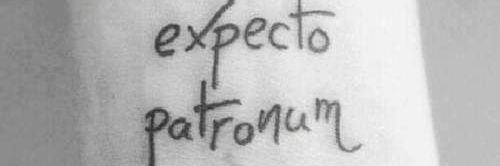 expecto
patronum